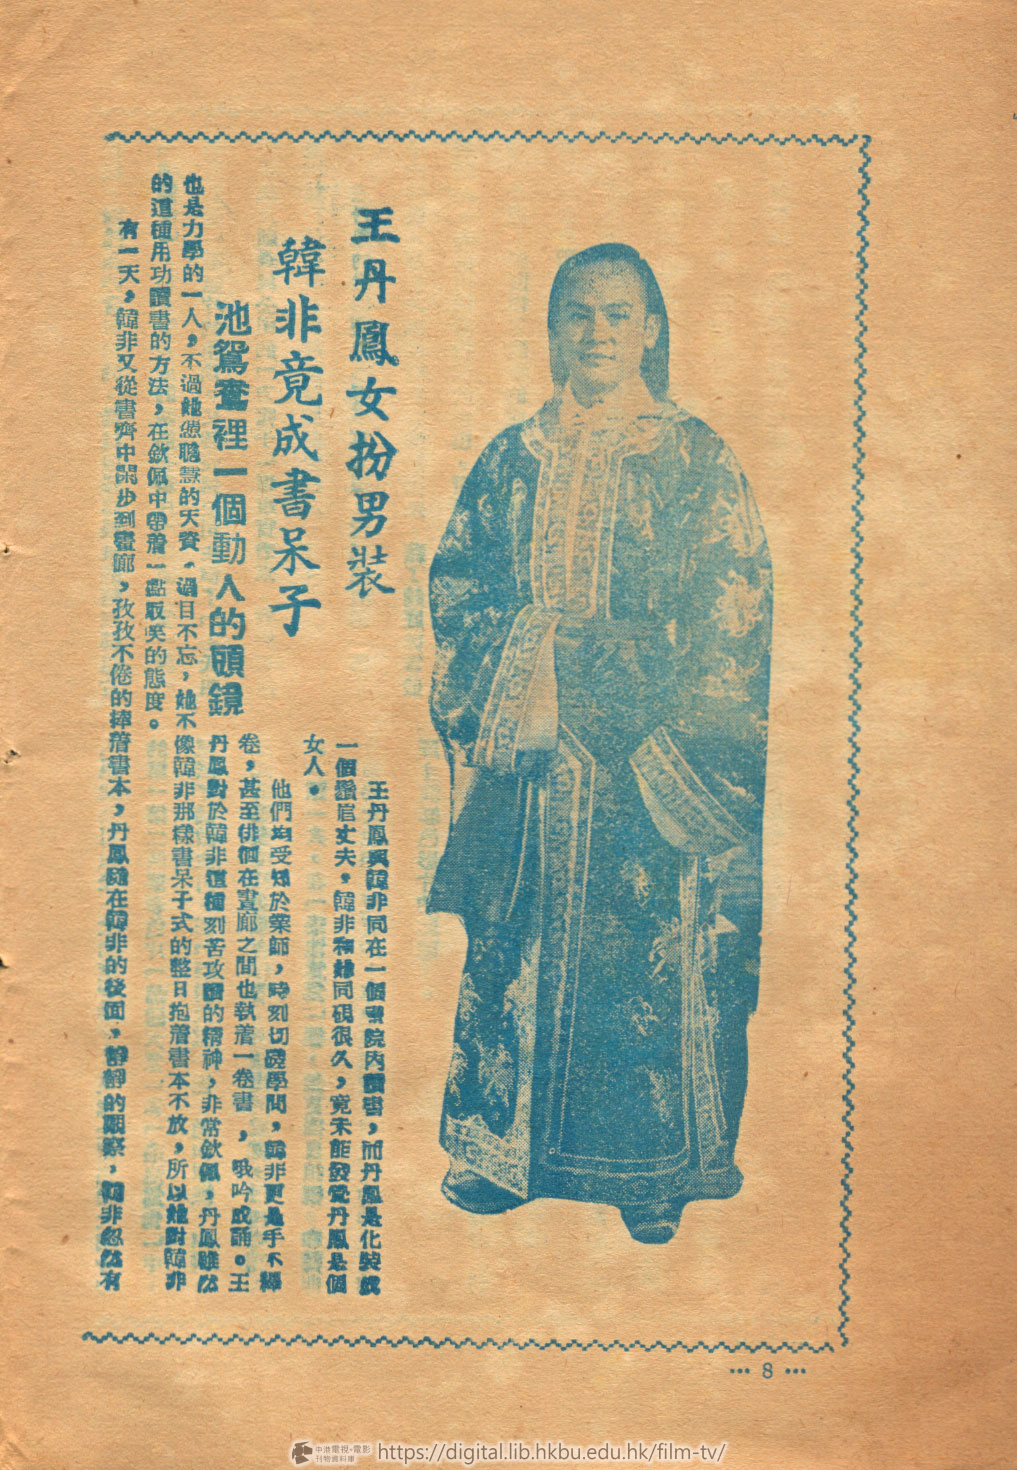 王丹鳳女扮男裝
韓非竟成書呆子
池鴛鴦裡一個動人的頭鏡
王丹鳳與韓非同在一個書院內讀書，而丹鳳是化裝成
一個鬚眉丈夫，韓非和她同硯很久，竟未能發覺丹鳳是個
女人。
他們均受知於業師，時刻切磋學問，韓非更是手不釋
卷，甚至徘徊在畫廊之間也執着一卷書，哦吟成誦。王
丹鳳對於韓非這種刻苦攻讀的精神，非常欽佩，丹鳳雖然
也是力學的一人，不過她憑聰慧的天資，過目不忘，她不像韓非那樣書呆子式的整日抱着書本不放，所以她對韓非
的這種用功讀書的方法，在欽佩中帶着一點取笑的態度。
有一天，韓非又從書齊中閑步到畫廊，孜孜不倦的捧着書本，丹鳳隨在韓非的後面，靜靜的觀察，韓非忽然有
••• 8 •••
中港電視·電影
刊物資料庫
https://digital.lib.hkbu.edu.hk/film-tv/